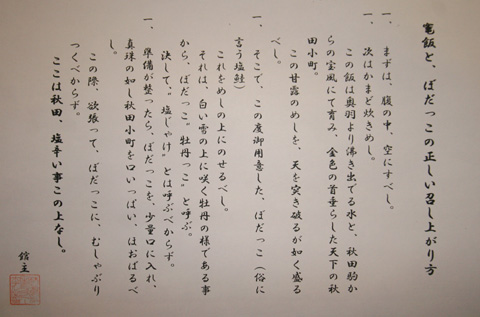 竃飯と、ぼだっこの正しい召し上がり方
一、まずは、腹の中、空にすべし。
一、次はかまど炊きめし。
この飯は奥羽より沸き出でる水と、秋田駒か
らの宝風にて育み、金色の首垂らした天下の秋
田小町。
この甘露のめしを、天を突き破るが如く盛る
べし。
一、そこで、この度御用意した、ぼだっこ（俗に
言う塩鮭）
これをめしの上にのせるべし。
それは、白い雪の上に咲く牡丹の様である事
から、ぼだっこ〝牡丹っこ〟と呼ぶ。
決して〝塩じゃけ〟とは呼ぶべからず。
一、準備が整ったら、ぼだっこを、少量口に入れ、
真珠の如し秋田小町を口いっぱい、ほおばるべ
し。
この際、欲張って、ぼだっこに、むしゃぶり
つくべからず。
ここは秋田、塩辛い事この上なし。
館主